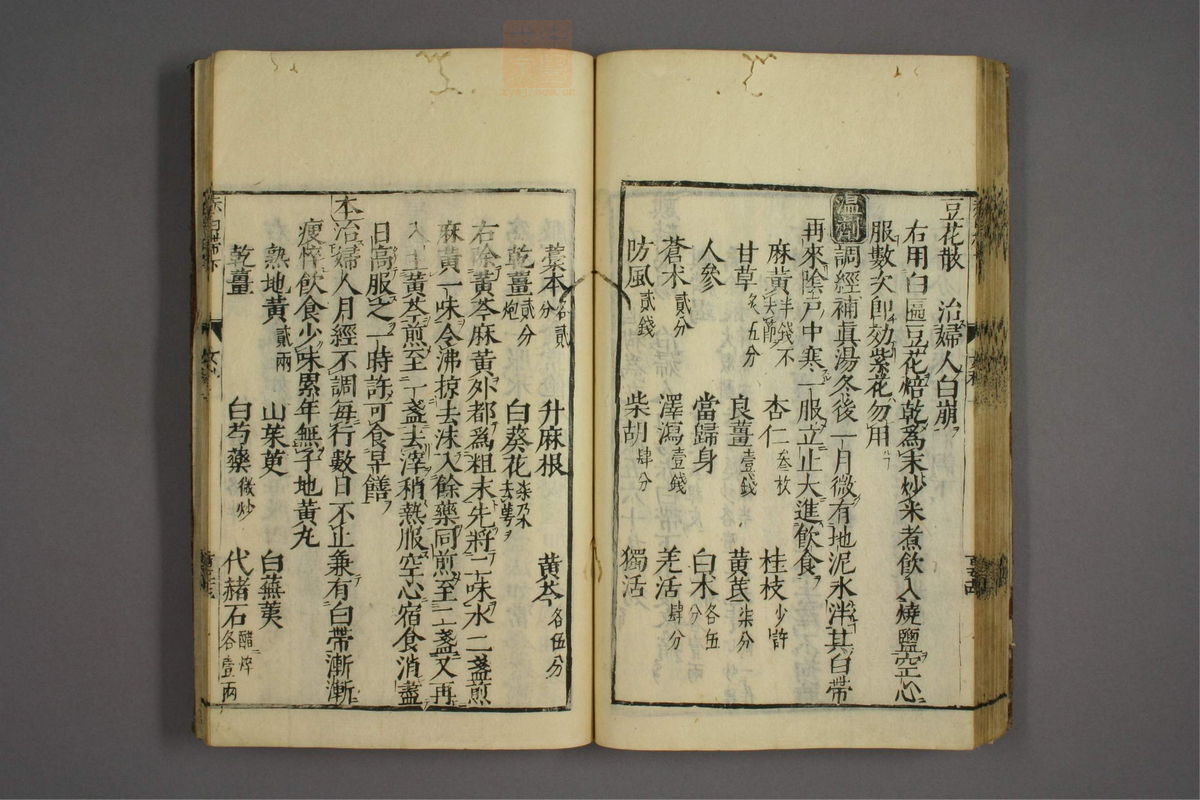 豆花散 治婦人白崩
右用白匾豆花焙乾為末炒米煮飲入燒鹽空心
服數次即効紫花勿用
温劑調經補真湯冬後一月微有地泥水泮其白帶
再來陰戸中寒一服立止大進飲食
麻黄半錢不去節 杏仁叁枚 桂枝少許
甘草炙五分 良薑壹錢 黄芪柒分
人參 當歸身 白术各伍分
蒼术貳分 澤瀉壹錢 羌活肆分
防風貳錢 柴胡肆分 獨活
藁本各貳分 升麻根 黄芩各伍分
乾薑貳分炮 白葵花柒朶去萼
右除黄芩麻黄外都為粗末先將二味水二盞煎
麻黄一味令沸掠去沫入餘藥同煎至二盞又再
入上黄芩煎至一盞去滓稍熱服空心宿食消盡
日高服之一時許可食早饍
本治婦人月經不調每行數日不止兼有白帶漸漸
瘦瘁飲食少味累年無子地黄丸
熟地黄貳兩 山茱萸 白蕪荑
乾薑 白芍藥微炒 代赭石醋焠各壹兩